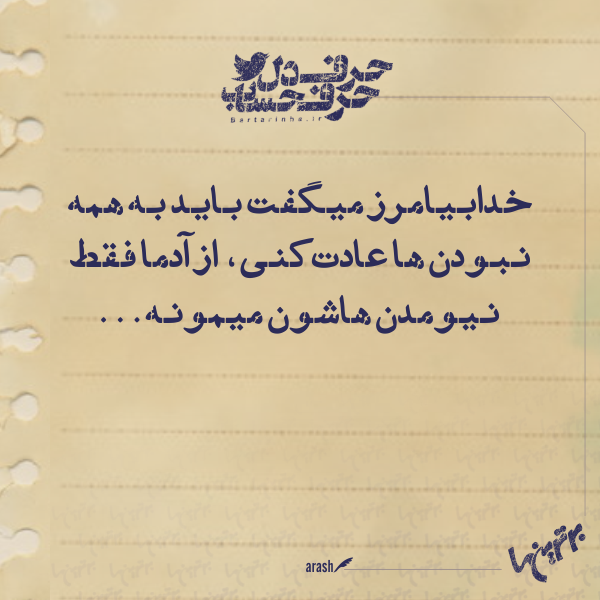 حرف دل
حرف حساب
Bartarinha.ir
خدابیامرز میگفت باید به همه
نبودن ها عادت کنی، از آدما فقط
نیومدن هاشون میمونه...
arash
برترین ها